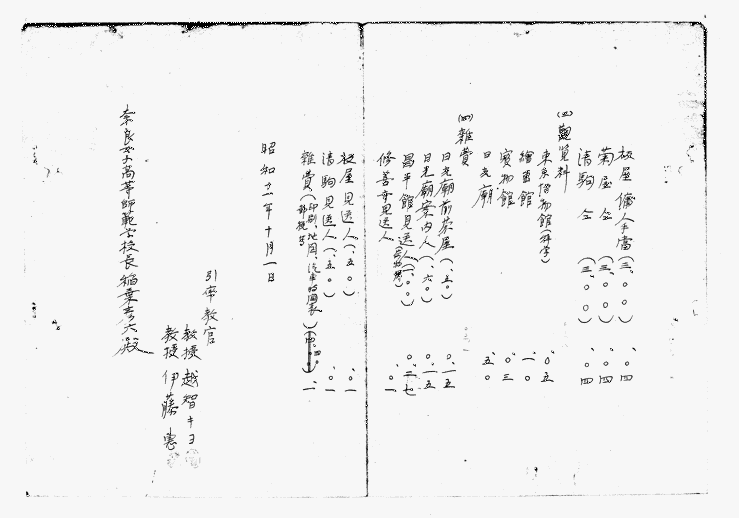 板屋傭人手當(三、〇〇) 、〇四
菊屋仝(三、〇〇) 、〇四
清駒仝(三、〇〇) 、〇四
(五)觀覽料
東京博物館(科学) 〇、〇五
繪画館 一、〇
寳物館 〇、〇三
日光廟 五、〇
(四)雜費
日光廟前茶屋(、五〇) 〇、一五
日光廟案内人(、六〇) 〇、一五
昌平館見送人(一、〇〇) 〇、二七
修善寺見送人 、〇一
板屋見送人(、五〇) 、〇一
清駒見送人(、五〇) 、〇一
雜費(印刷、地図、汽車時間表
昭和十一年十月一日
引率教官
教授 越智キヨ
教授 伊藤恵
奈良女子高等師範学校長稲葉彦六殿